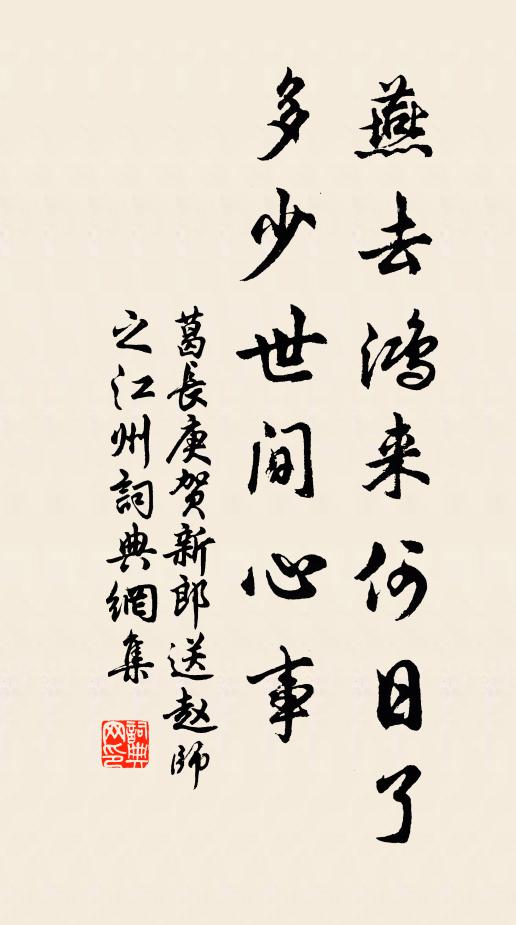 燕去鸿来何日了
多少世间心事
葛長庚贺新郎送赵師
之江州詞典網集
詞典网印